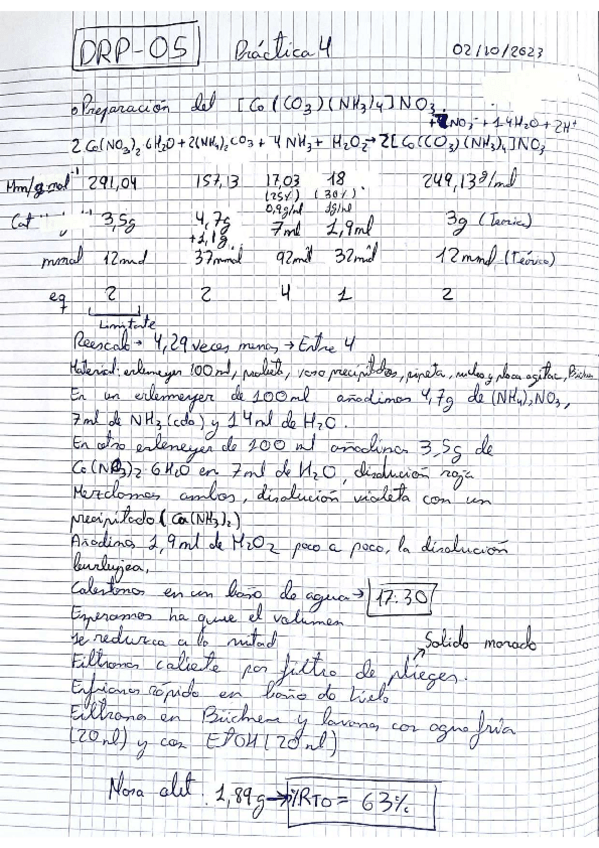 DRP-05 Práctica 4 02/10/2023
Preparación del [Co(CO3)(NH3)4]NO3.
+ NO3- + 14H2O + 2H+
2 Co(NO3)2·6H2O + 2(NH4)2CO3 + 4NH3 + H2O2 → 2[Co(CO3)(NH3)4]NO3
Mm/g·mol-1 291,04 157,13 17,03 18 249,13 g/mol
(25%) (30%)
0,9g/ml 1g/ml
Cat 3,5g 4,7g 7ml 1,9ml 3g (Teórica)
+1,1g
mmol 12mmol 37mmol 92mml 32mml 12mmol (Teórico)
eq 2 2 4 1 2
Limitante
Reescalo → 4,29 veces menos → Entre 4
Material: erlenmeyer 100ml, probeta, vaso precipitdos, pipeta, nucleo y placa agitac,
En un erlenmeyer de 100ml añadimos 4,7g de (NH4)2NO3,
7ml de NH3(cdo) y 14ml de H2O.
En otro erlenmeyer de 100 ml añadimos 3,5g de
Co(NO3)2·6H2O en 7ml de H2O, disolución roja
Mezclamos ambos, disolución violeta con un
precipitado (Co(NH3)2)
Añadimos 1,9ml de H2O2 poco a poco, la disolución
burbujea.
Calentamos en un baño de agua → 17:30
Esperamos ha que el volumen
se reduzca a la mitad
Solido morado
Filtramos caliente por filtro de plieges.
Enfriamos rápido en baño de hielo
Filtramos en Büchner y lavamos con agua fría
(20ml) y con EtOH (20ml)
Masa obt. 1,89g → %RTO = 63%